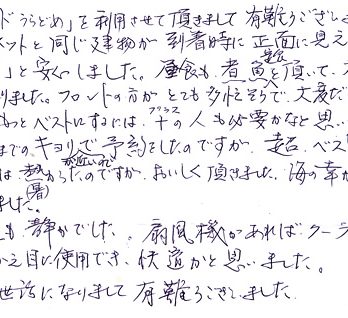 ドうらどめ」を利用させて頂きまして 有難うござい
ットと同じ建物が 到着時に 正面に見え
」と安心しました。昼食も、煮魚定食を頂いて、
りました。フロントの方が とても多忙そうで、大変だ
もっとベストにするには、+プラスの人も必要かなと思い
までの、キョリで 予約をしたのですが
は 熱(暑)かったのですが、おいしく頂きました。海の幸が
ました。
も 静かでした。扇風機があればクーラ
から目に使用でき、快適かと思いました。
世話になりまして 有難うございました。